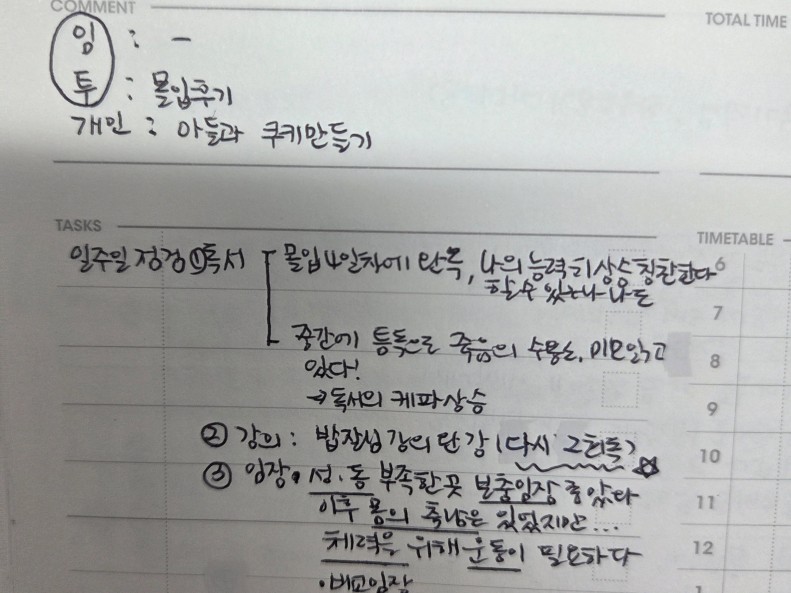 COMMENT
TOTAL TIME
임 : -
투 : 몰입후기
개인 : 아들과 쿠키만들기
TASKS
TIMETABLE
일주일 정검 ①독서
몰입 4일차에 완독, 나의 능력치상승 칭찬한다
할수 있나 나도
중간에 틈독으로 죽음의 수용소, 미모읽고
있다!
→ 독서의 케파상승
② 강의 : 밥잘님 강의 완강 (다시 2회독)
③ 임장. 성.동 부족한곳 보충임장 좋았다
이후 몸의 축남은 있었지만...
체력을 위해 운동이 필요하다
·비교임장
6
7
8
9
10
11
12
1